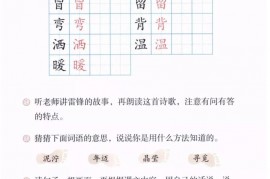 冒 冒 留 留
弯 弯 背 背
洒 洒 温 温
暖 暖
听老师讲雷锋的故事，再朗读这首诗歌，注意有问有答
的特点。
猜猜下面词语的意思，说说你是用什么方法知道的。
泥泞 年迈 晶莹 寻觅